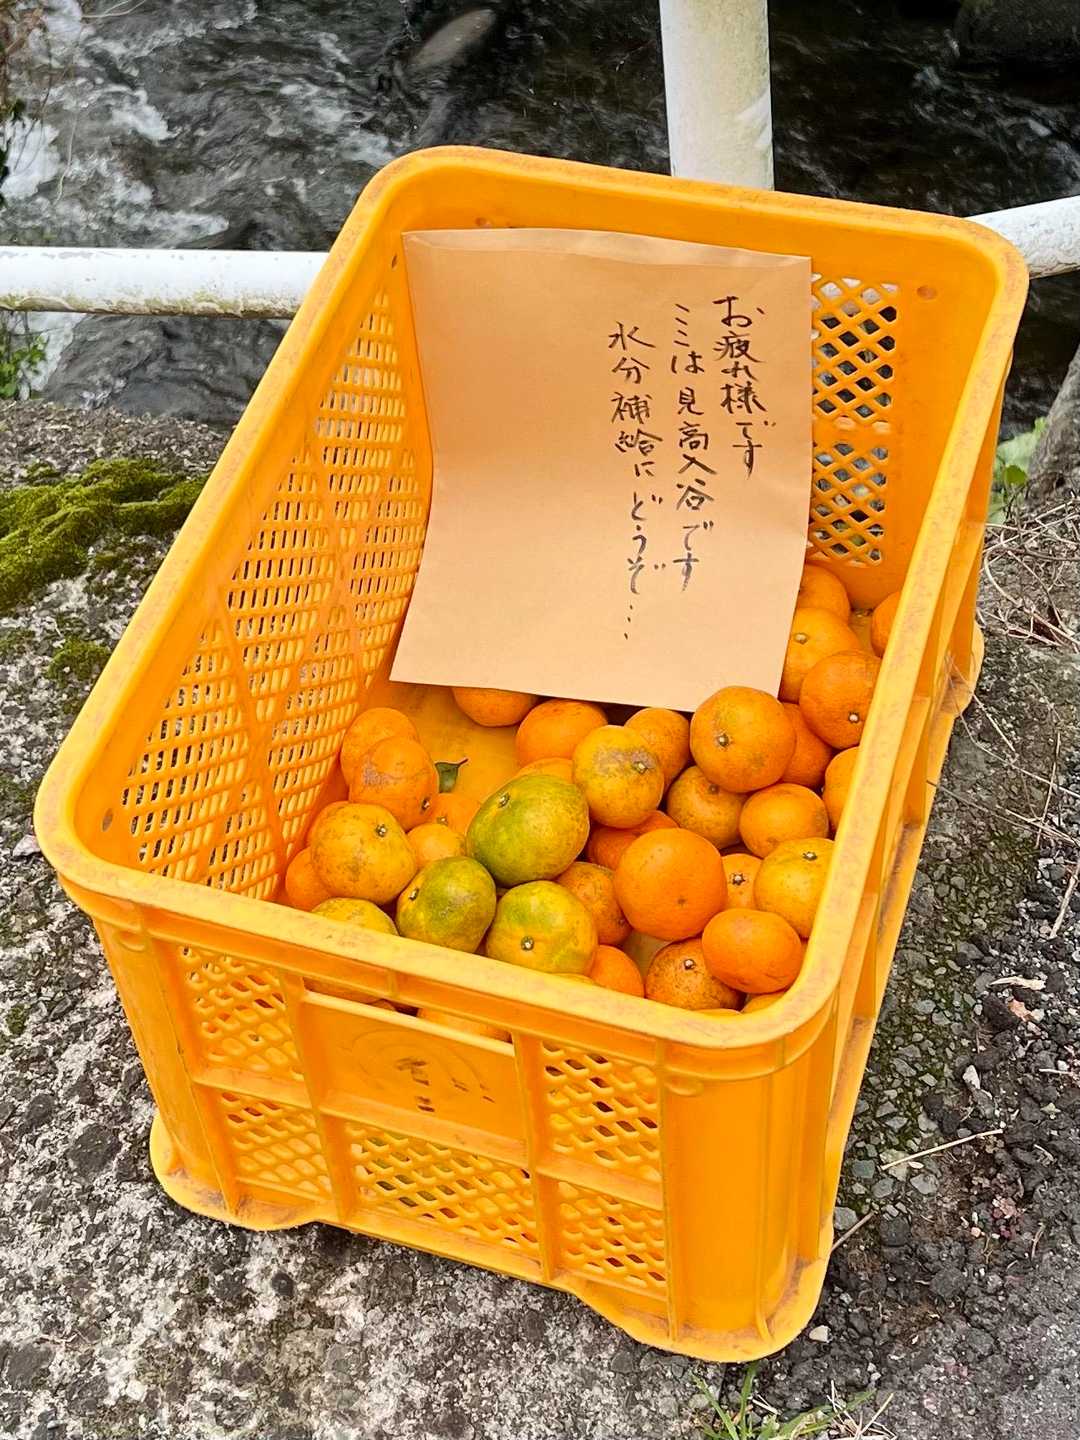 お疲れ様です
ここは見高入谷です
水分補給にどうぞ…